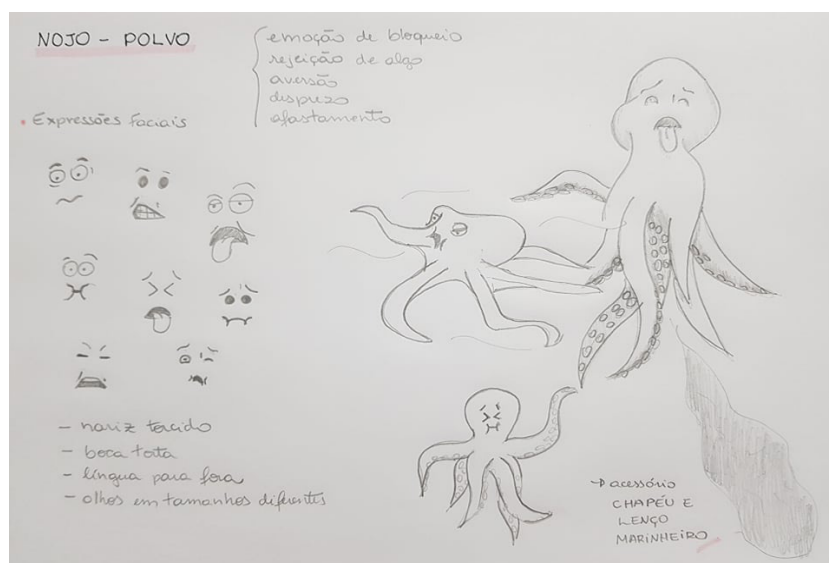 NOJO - POLVO
emoção de bloqueio
rejeição de algo
aversão
desprezo
afastamento
• Expressões faciais
- nariz torcido
- boca torta
- língua para fora
- olhos em tamanhos diferentes
→ acessório
CHAPÉU E
LENÇO
MARINHEIRO